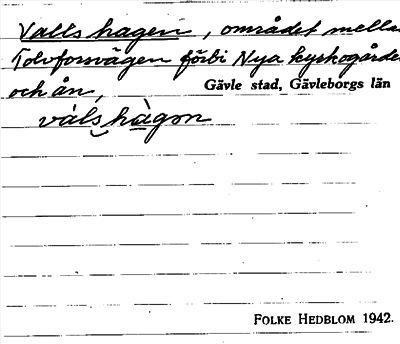 Valls hagen, området mella
Tolvforsvägen förbi Nya kyrkogårde
och ån,
Gävle stad, Gävleborgs län
våls hàgan
FOLKE HEDBLOM 1942.